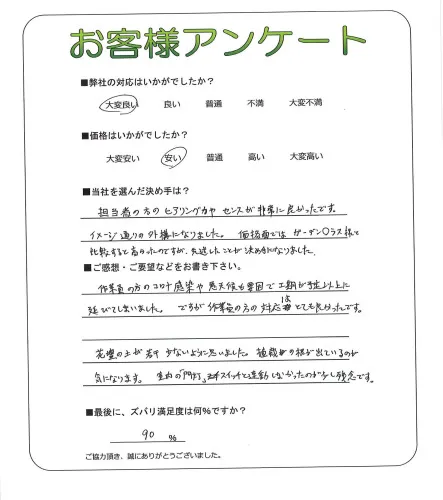 お客様アンケート
■弊社の対応はいかがでしたか？
大変良い 良い 普通 不満 大変不満
■価格はいかがでしたか？
大変安い 安い 普通 高い 大変高い
■当社を選んだ決め手は？
担当者の方のヒアリング力や センスが非常に良かったです。
イメージ通りの外構になりました。 価格面では ガーデン〇ラス様と
比較すると高かったのですが、先述したことが決め手になりました。
■ご感想・ご要望などをお書き下さい。
作業員の方のコロナ感染や悪天候も要因で工期が予定以上に
延びてしまいました。 ですが作業員の方の対応は とても良かったです。
花壇の土が若干少ないように思いました。 植栽の根が出ているのが
気になります。 玄関の「門灯」がスイッチと連動しなかったのが少し残念です。
■最後に、ズバリ満足度は何％ですか？
90 ％
ご協力頂き、誠にありがとうございました。